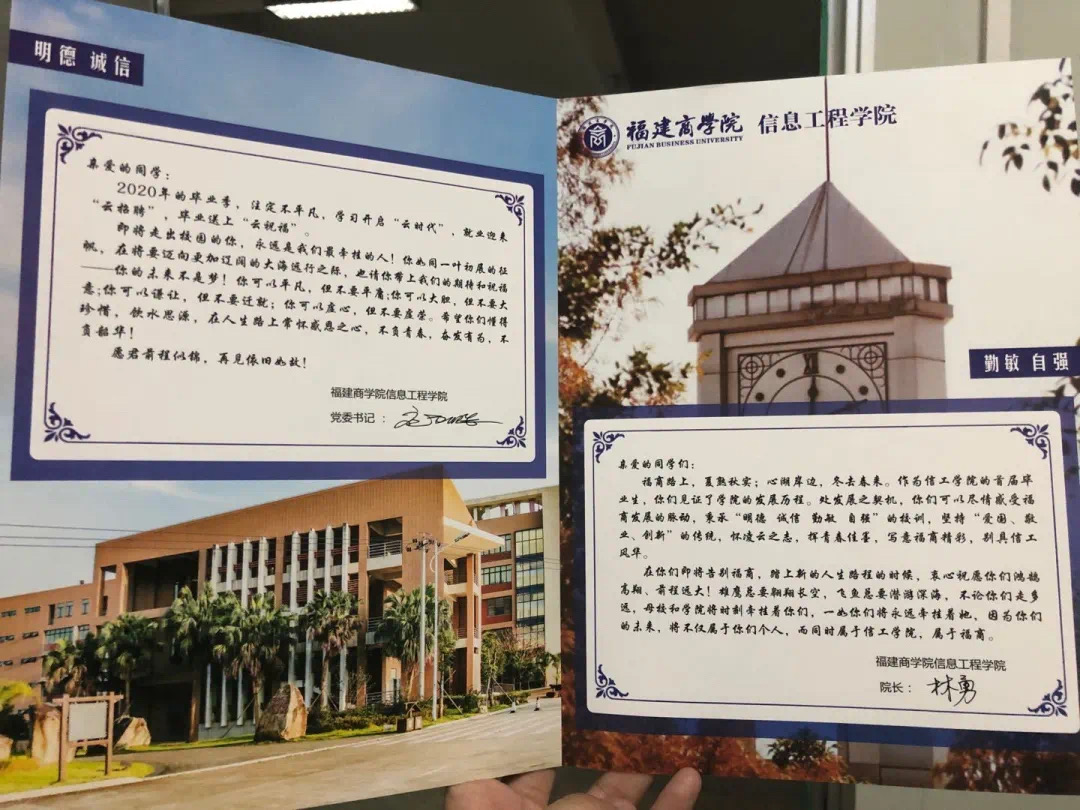 明德 诚信
亲爱的同学：
2020年的毕业季，注定不平凡，学习开启“云时代”，就业迎来
“云招聘”，毕业送上“云祝福”。
即将走出校园的你，永远是我们最牵挂的人！你如同一叶初展的征
帆，在将要迈向更加辽阔的大海远行之际，也请你带上我们的期待和祝福
——你的未来不是梦！你可以平凡，但不要平庸;你可以大胆，但不要大
意;你可以谦让，但不要迁就；你可以虚心，但不要虚荣。希望你们懂得
珍惜，饮水思源，在人生路上常怀感恩之心，不负青春，奋发有为，不
负韶华！
愿君前程似锦，再见依旧如故！
福建商学院信息工程学院
党委书记：
福建商学院 信息工程学院
FUJIAN BUSINESS UNIVERSITY
勤敏 自强
亲爱的同学们：
福商路上，夏熟秋实；心湖岸边，冬去春来。作为信工学院的首届毕
业生，你们见证了学院的发展历程。处发展之契机，你们可以尽情感受福
商发展的脉动，秉承“明德 诚信 勤敏 自强”的校训，坚持“爱国、敬
业、创新”的传统，怀凌云之志，挥青春佳墨，写意福商精彩，别具信工
风华。
在你们即将告别福商，踏上新的人生路程的时候，衷心祝愿你们鸿鹄
高翔、前程远大！雄鹰总要翱翔长空，飞鱼总要潜游深海，不论你们走多
远，母校和学院将时刻牵挂着你们，一如你们将永远牵挂着她，因为你们
的未来，将不仅属于你们个人，而同时属于信工学院，属于福商。
福建商学院信息工程学院
院长：林勇